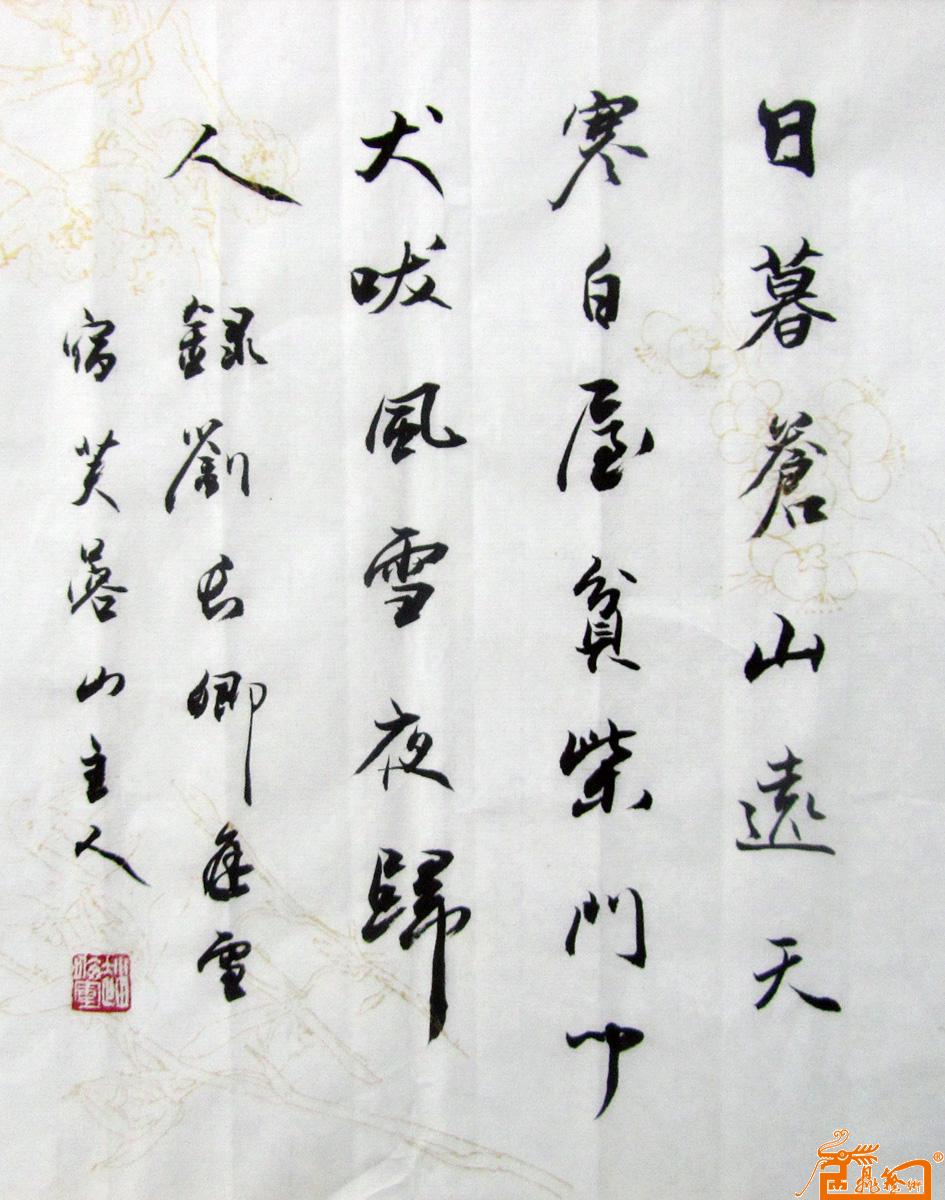 日暮蒼山遠天
寒白屋貧柴門聞
犬吠風雪夜歸
人 録劉長卿逢雪
宿芙蓉山主人